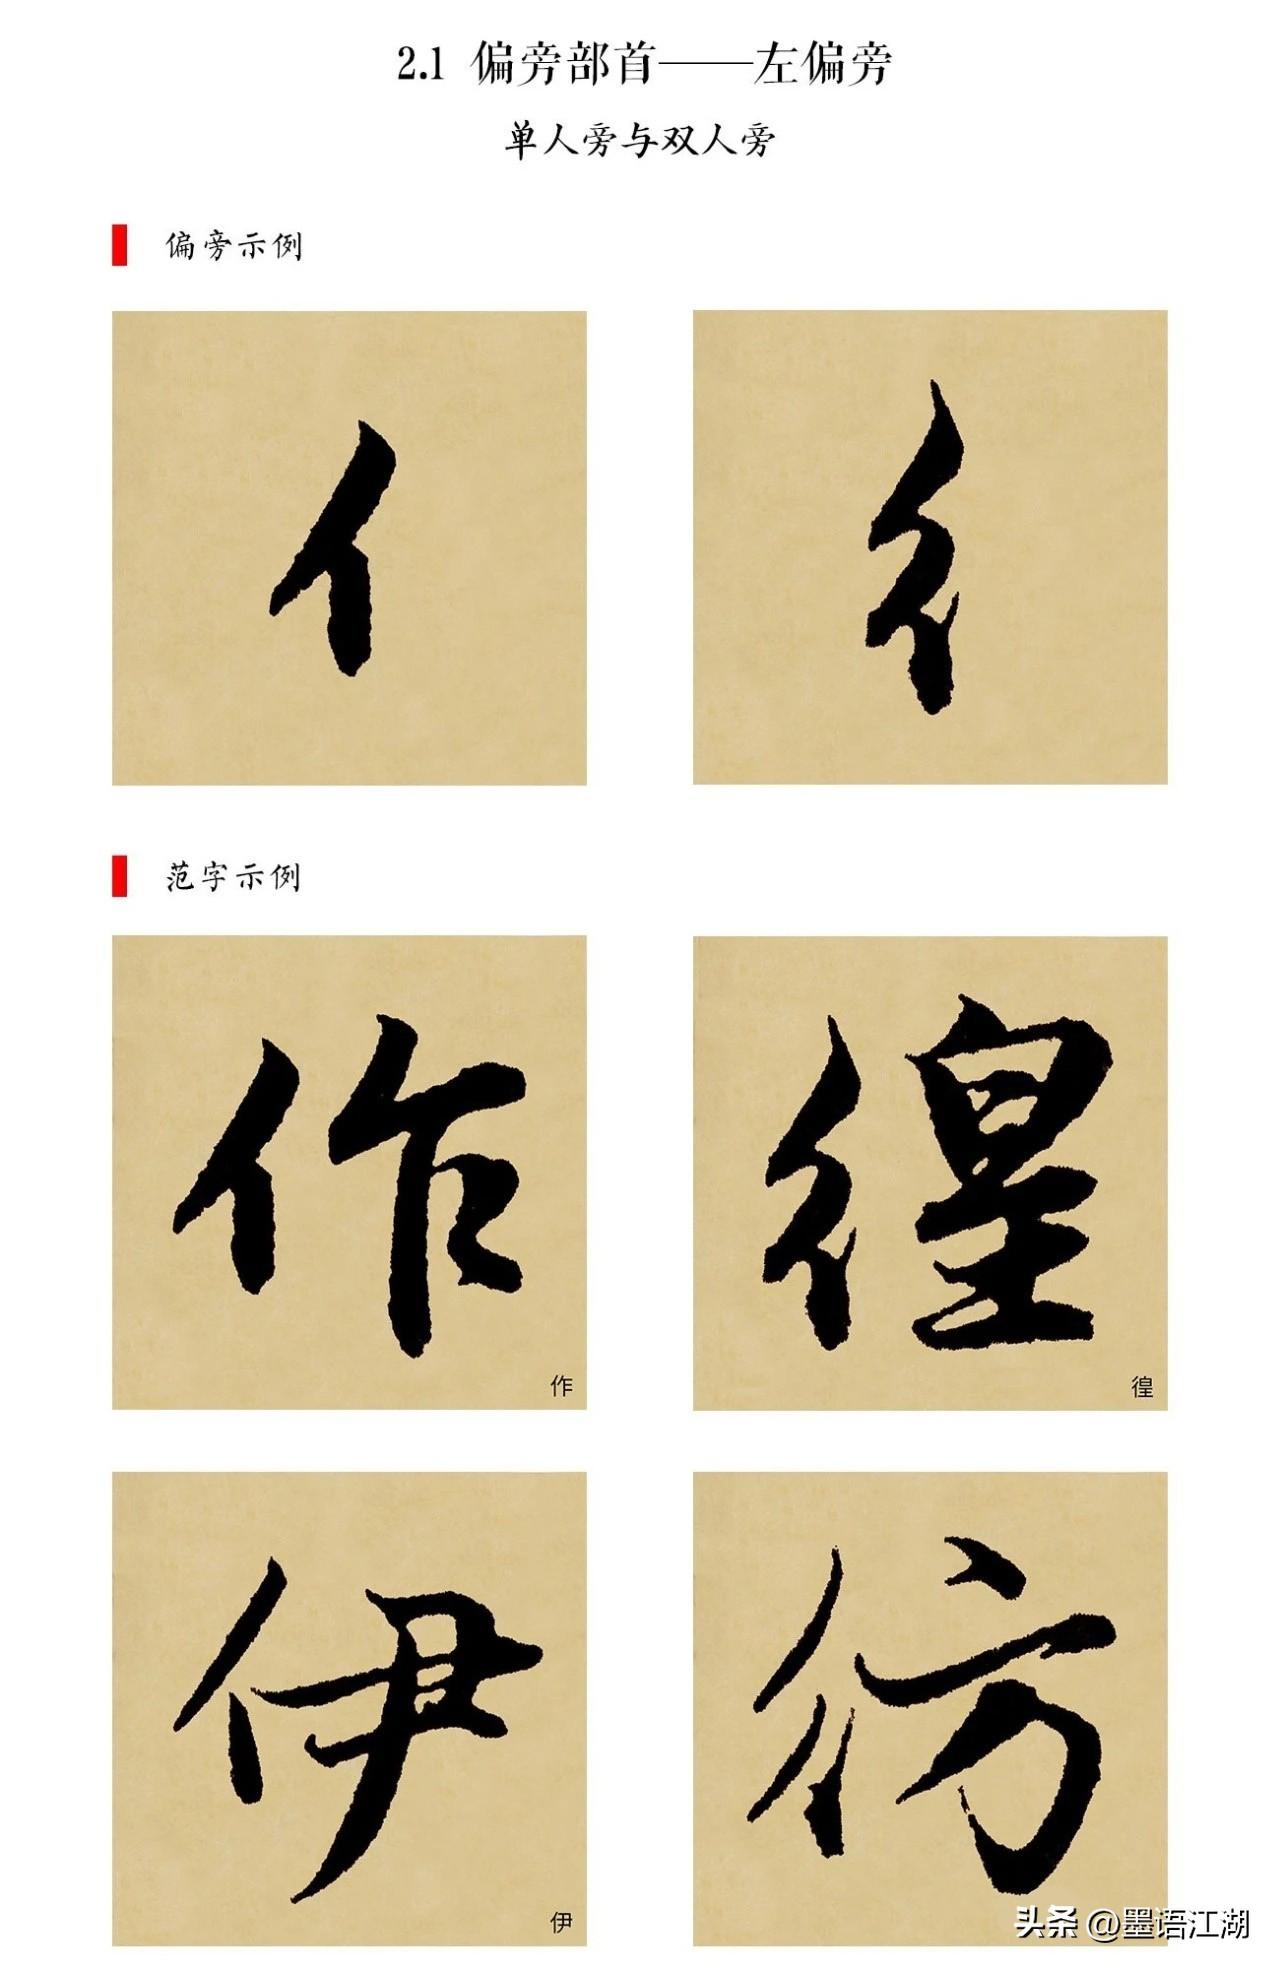 2.1 偏旁部首——左偏旁
单人旁与双人旁
偏旁示例
亻 彳
范字示例
作 徨
作 徨
伊 彷
伊
头条 @墨语江湖